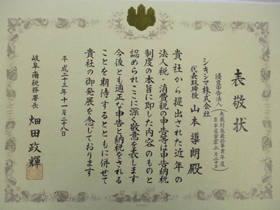 表敬状
シキシマ株式会社
代表取締役 山本 導朗 殿
貴社から提出された近年の
法人税・消費税の申告等は申告納税
制度の本旨に即した内容のものと
認められここに深く敬意を表します
今後とも適正な申告と納税をされる
ことを期待するとともに併せて
貴社の御発展を念じております
平成二十三年十一月二十八日
岐阜南税務署長
畑田政輝